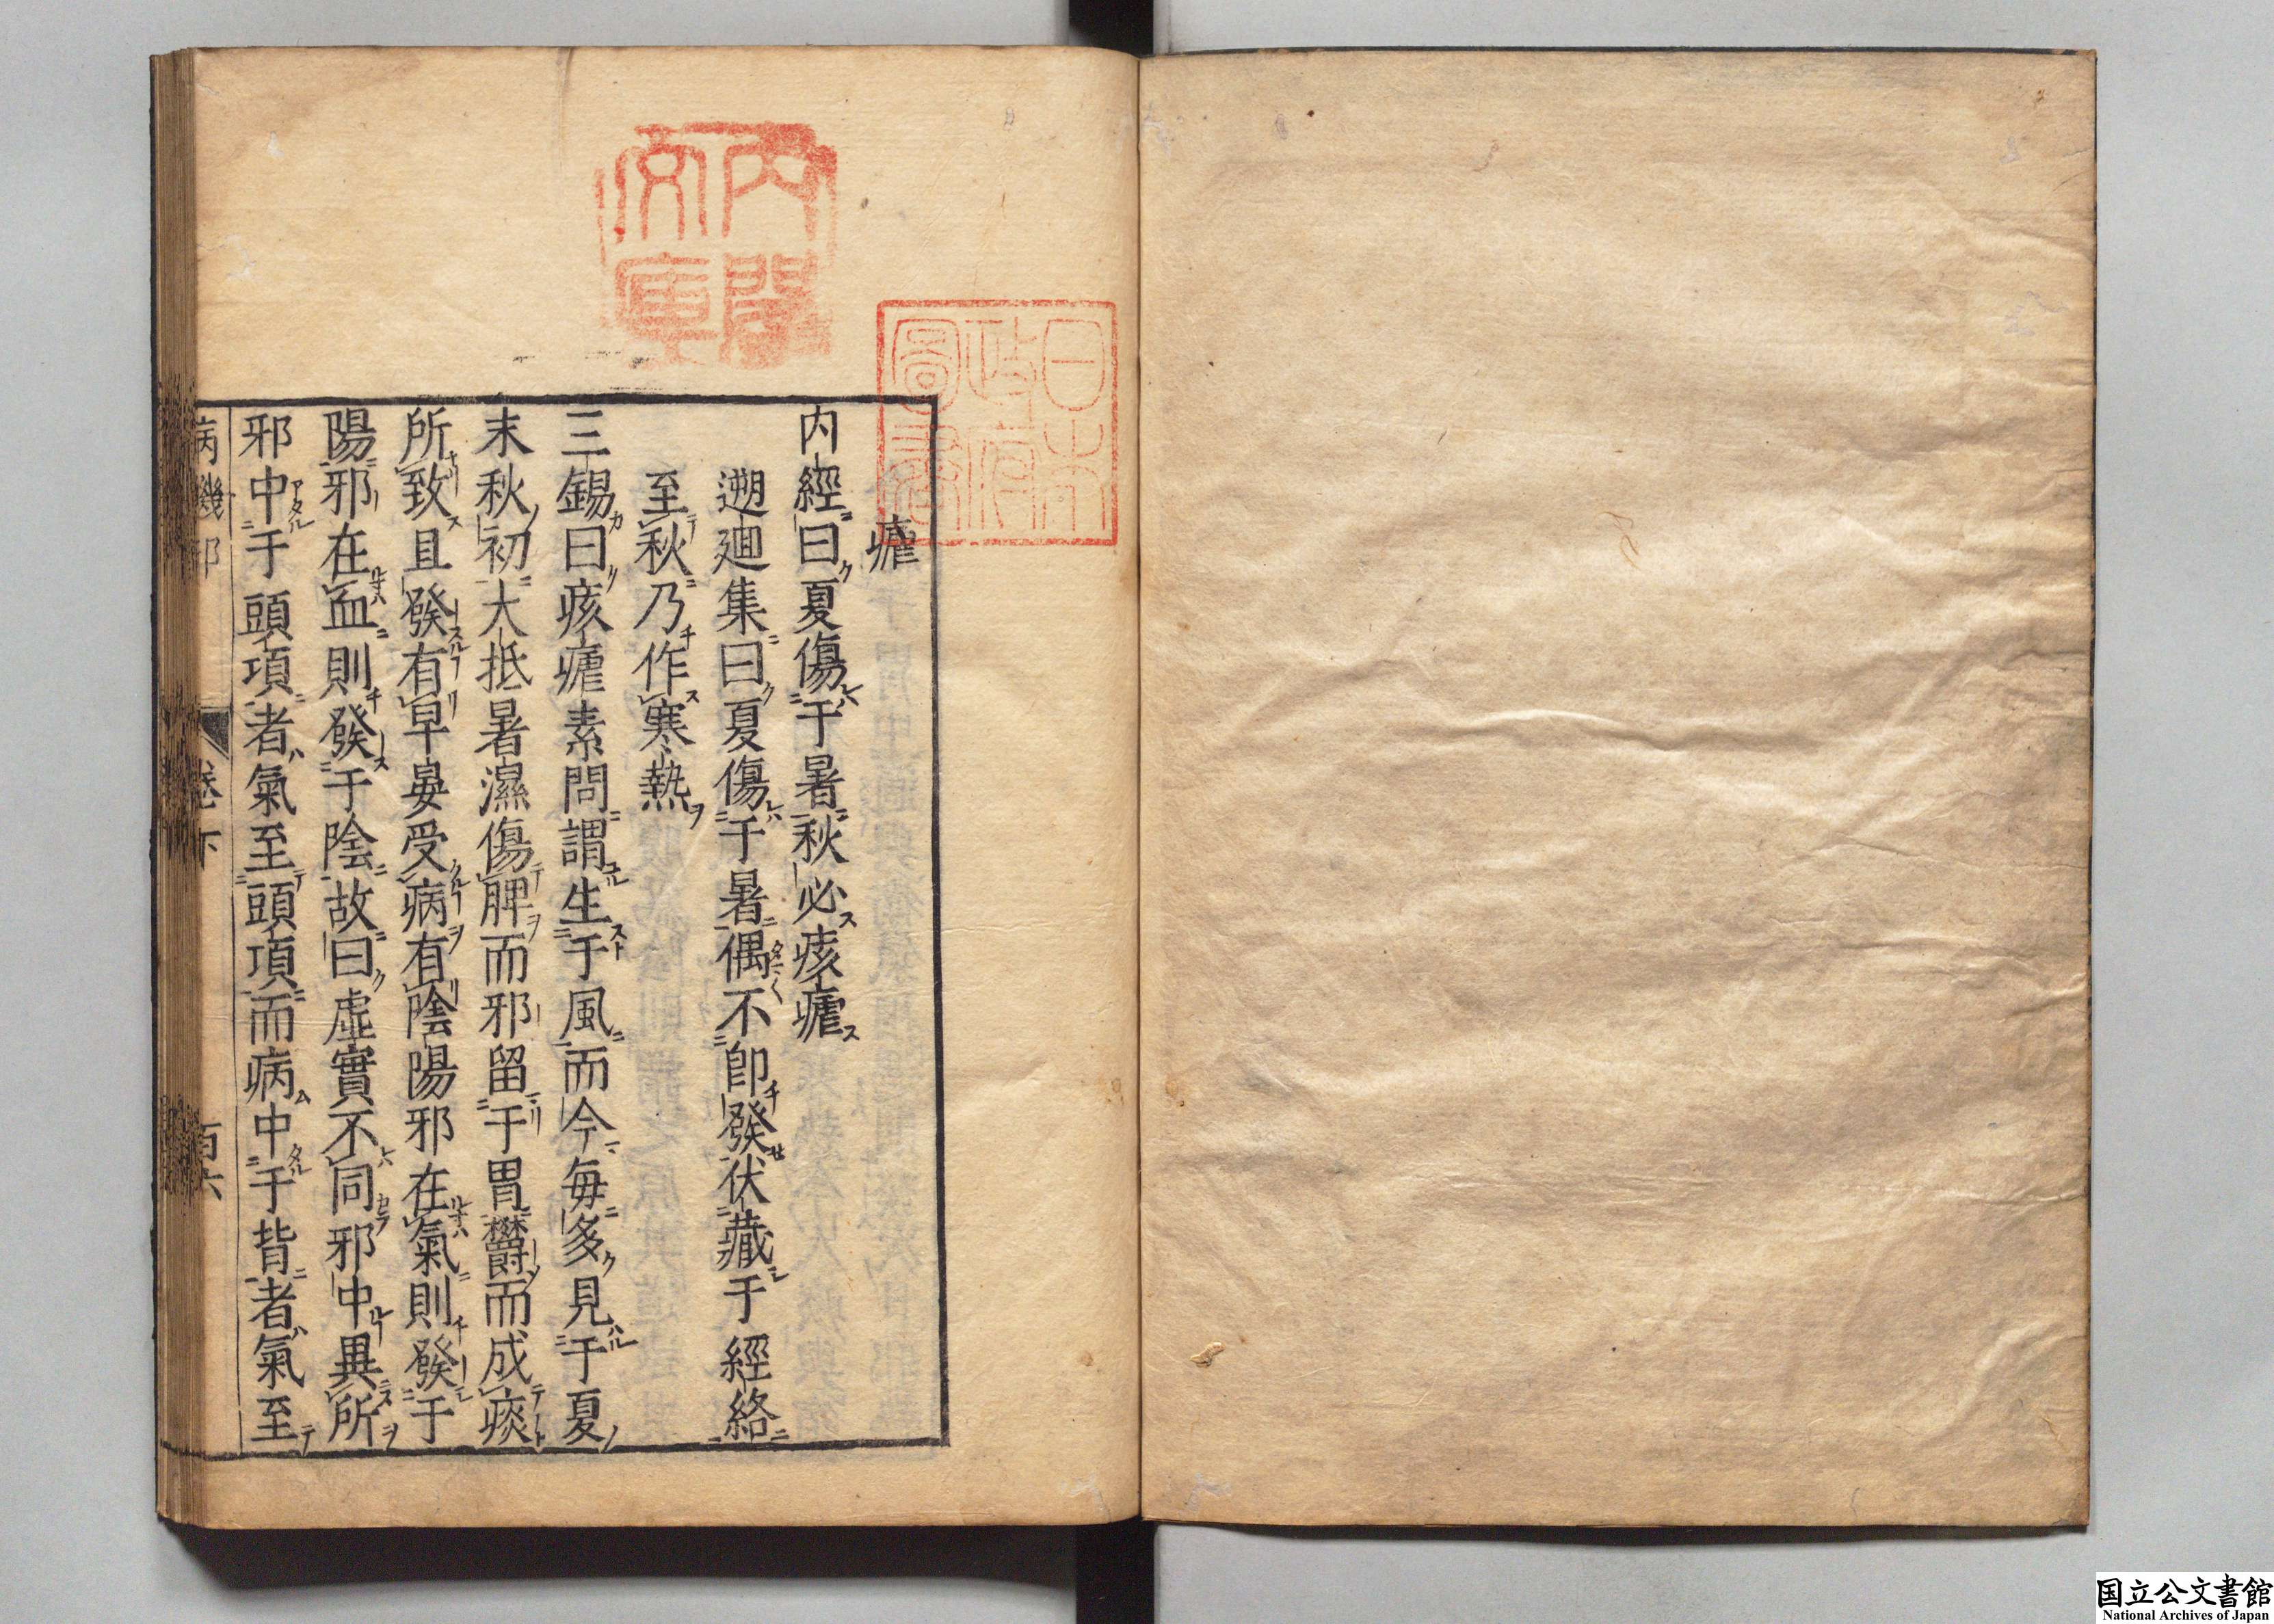 内閣
文庫
日本
政府
圖書
瘧
内經曰夏傷于暑秋必痎瘧
遡𢌞集曰夏傷于暑偶不卽發伏藏于經絡
至秋乃作寒熱
三錫曰痎瘧素問謂生于風而今毎多見于夏
末秋初大抵暑濕傷脾而邪留于胃欝而成痰
所致且發有早晏受病有陰陽邪在氣則發于
陽邪在血則發于陰故曰虛實不同邪中異所
邪中于頭項者氣至頭項而病中于背者氣至
病機 卷下 百六
国立公文書館
National Archives of Japan